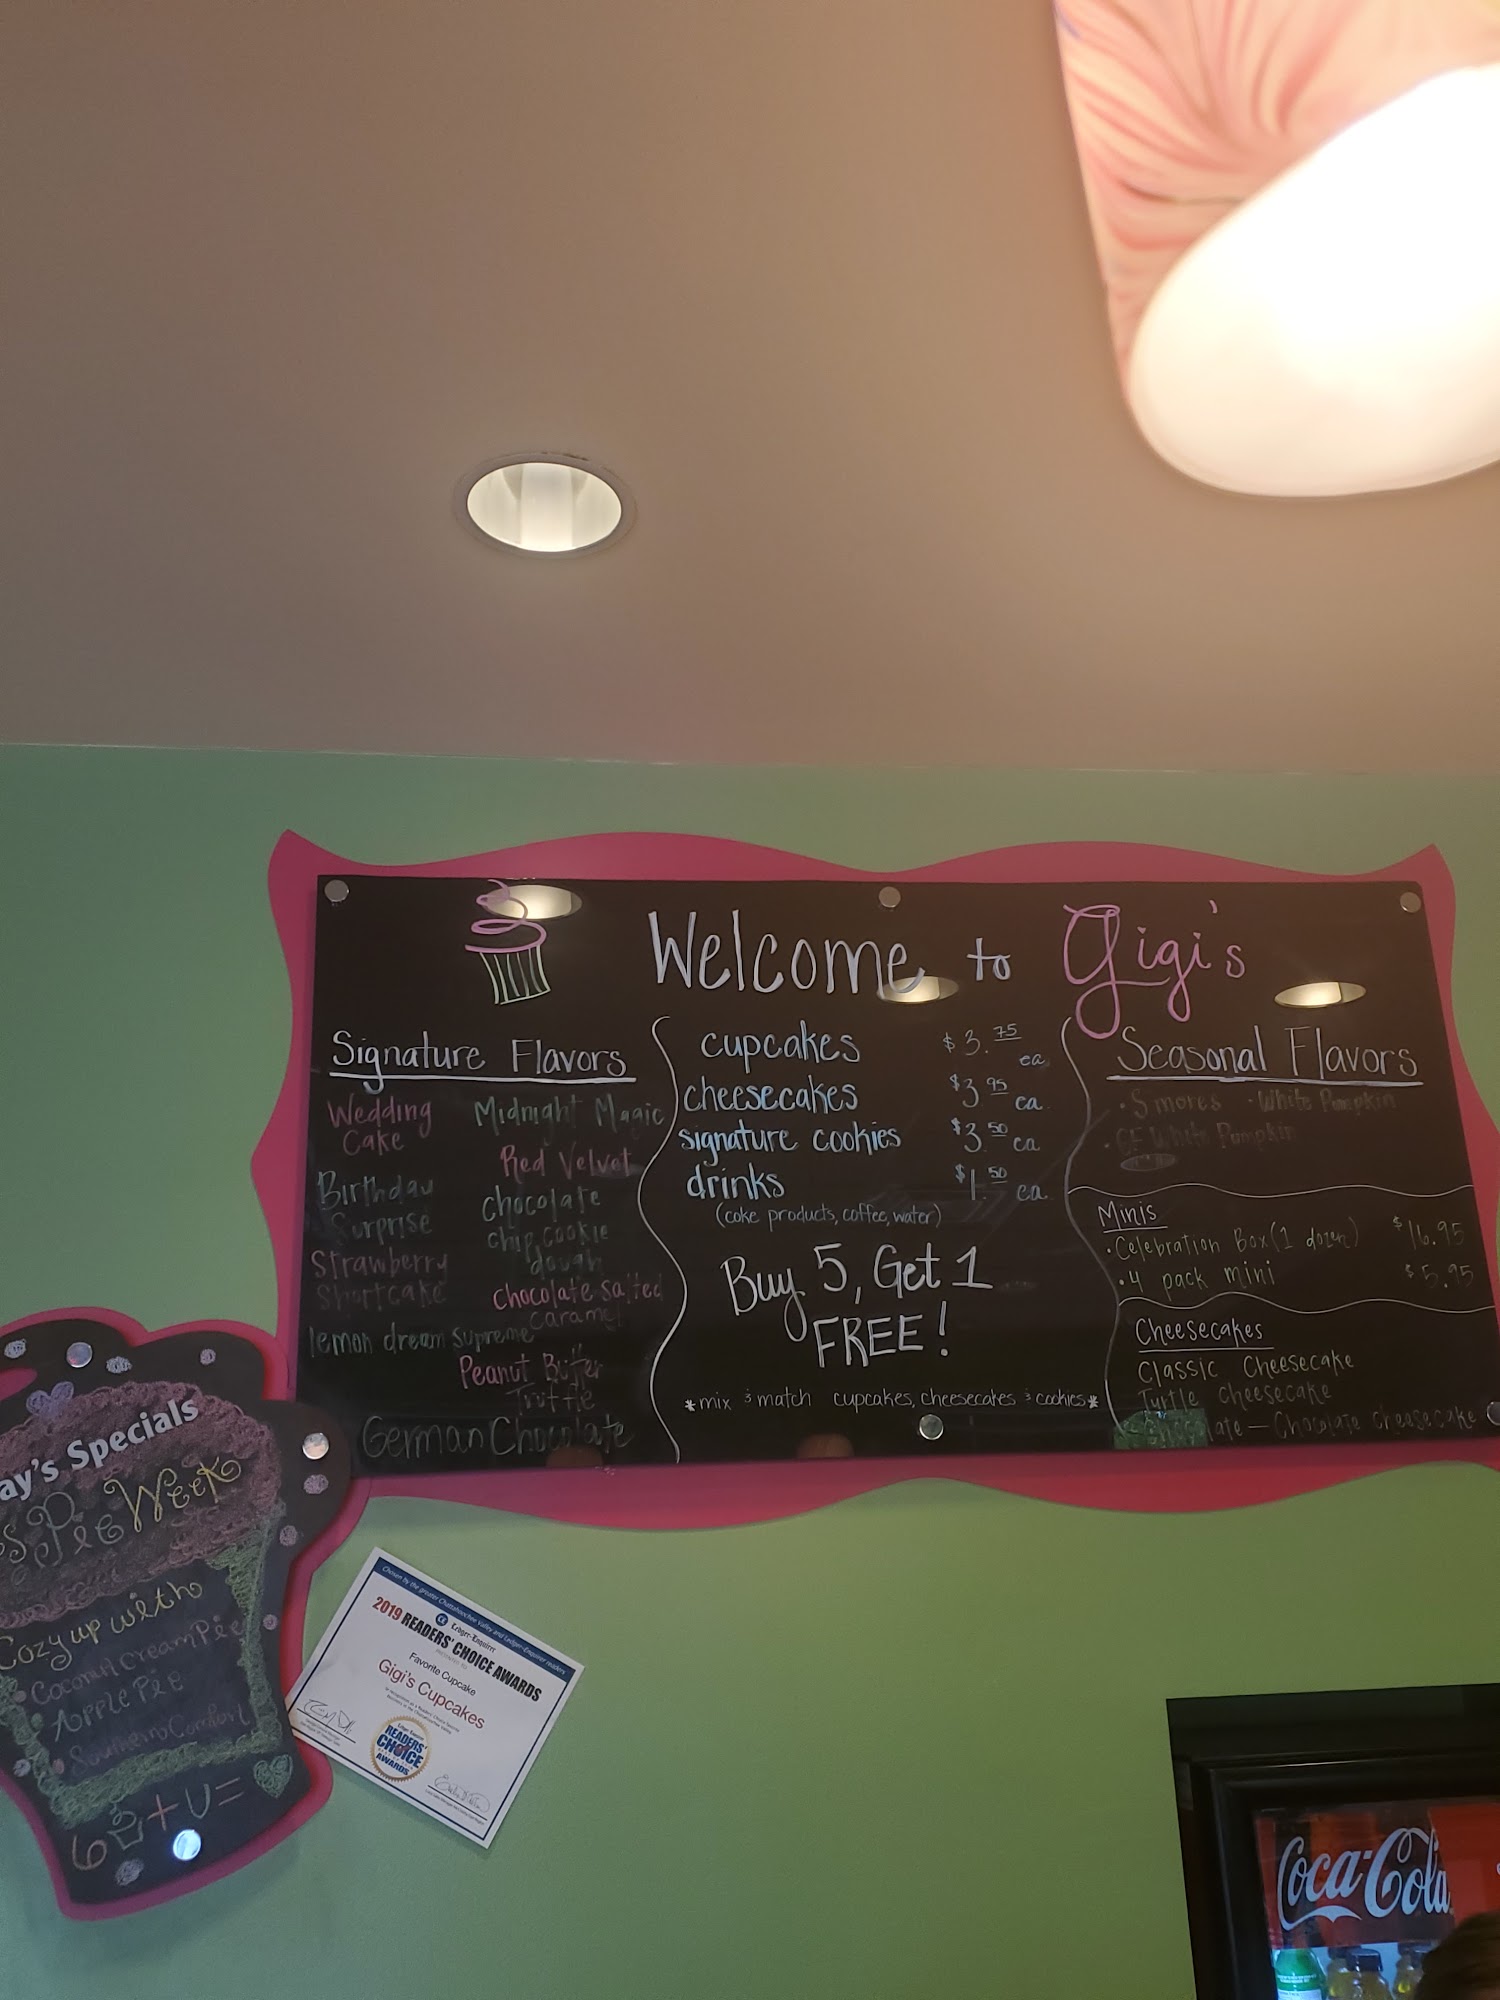 Welcome to Gigi's
Signature Flavors
Wedding
Cake
Birthday
Surprise
Strawberry
Shortcake
lemon dream supreme
Midnight Magic
Red Velvet
chocolate
chip cookie
dough
chocolate salted
caramel
Peanut Butter
Truffle
German Chocolate
cupcakes $3.75 ea
cheesecakes $3.95 ea
signature cookies $3.50 ea
drinks $1.50 ea
(coke products, coffee, water)
Buy 5, Get 1
FREE!
*mix & match cupcakes, cheesecakes & cookies*
Seasonal Flavors
• S'mores • White Pumpkin
• GF White Pumpkin
Minis
• Celebration Box (1 dozen) $16.95
• 4 pack mini $5.95
Cheesecakes
Classic Cheesecake
Turtle Cheesecake
Chocolate - Chocolate cheesecake
ay's Specials
s Pie Week
Cozy up with
Coconut Cream Pie
Apple Pie
Southern Comfort
6 + U =
Chosen by the greater Chattahoochee Valley and Ledger-Enquirer readers
Ledger-Enquirer
2019 READERS' CHOICE AWARDS
Favorite Cupcake
Gigi's Cupcakes
READERS'
CHOICE
AWARDS
Coca-Cola